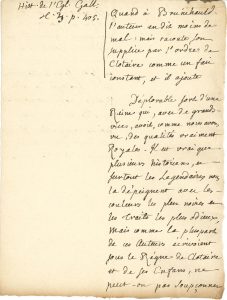 Hist. de l'Egl. Gall.
p. 405.
Quand à Brunehauld
l'auteur en dit moins de
mal: mais raconte son
supplice par l'ordre de
Clotaire comme un fait
constant, et il ajoute
Déplorable sort d'une
Reine qui, avec de grands
vices, avoit, comme nous avons
vu, des qualités vraiment
Royales. Il est vrai que
plusieurs historiens, et
surtout les Legendaires
la dépeignent avec les
couleurs les plus noires et
les traits les plus odieux,
mais comme la pluspart
de ces Auteurs écrivoient
sous le Règne de Clotaire
et de ses Enfans, ne
peut on pas soupçonner